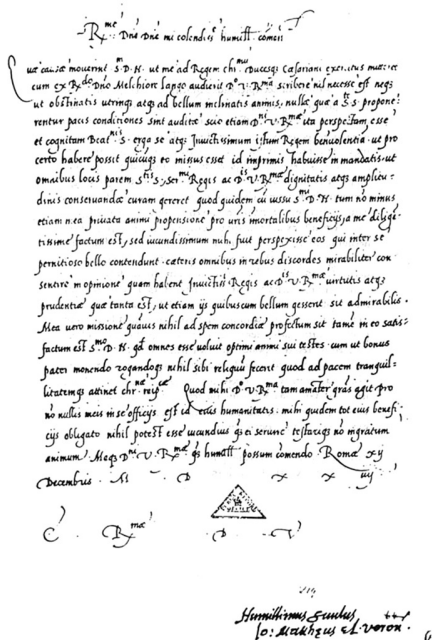 R^me Dñe Dñe mi colendis^e humill^e com̃en
uæ causæ mouerint S^m D. H. ut me ad Regem chr^mu Ducesqs Cæsariani exercitus mitteret
cum ex R^do Dño Melchiore lango audierit D^o V. R^ma scribere nil necesse est neqs
ut obstinatis utrinqs atqs ad bellum inclinatis animis, nullæ quæ a S^te S. propone
rentur pacis conditiones sint auditæ scio etiam D^ni V. R^mæ ita perspectam esse
et cognitam Beat^nis S. erga se atqs Inuictissimum istum Regem beniuolentia ut pro
certo habere possit quicuqs eo missus esset id imprimis habuisse in mandatis ut
omnibus locis parem S^tis S. ser^mi Regis ac D^is V. R^mæ dignitatis atqs amplitu
dinis conseruandæ curam gereret quod quidem cũ iussu S^mi D. H. tum nõ minus
etiam mea priuata animi propensione pro uris imortalibus beneficijs a me dilige
tissime factum est, sed iucundissimum mihi fuit perspexisse eos qui inter se
pernitioso bello contendunt cæteris omnibus in rebus discordes mirabiliter con
sentire in opinione quam habent Inuictiss^i Regis ac D^is V. R^mæ uirtutis atqs
prudentiæ quæ tanta est, ut etiam ijs quibuscum bellum gesserit sit admirabilis.
Mea uero missione quãuis nihil ad spem concordiæ profectum sit tamẽ in eo satis
factum est S^mo D. H. qd omnes esse uoluit optimi animi sui testes cum ut bonus
pater monendo rogandoqs nihil sibi reliquũ fecerit quod ad pacem tranquil
litatemqs attinet chr^næ reip^cæ Quod mihi D^o V. R^ma tam amãter grãs agit pro
nõ nullis meis in se officijs est id eius humanitatis. mihi quidem tot eius benefi
cijs obligato nihil potest esse iucundius qs ei seruire testariqs nõ ingratum
animum. Meqs D^ni V. R^mæ qs humill^e possum cõmendo Romæ xij
Decembris M D x x iiij
E R^mæ D V
Humillimus seruulus
Jo: Mattheus el. Veron.